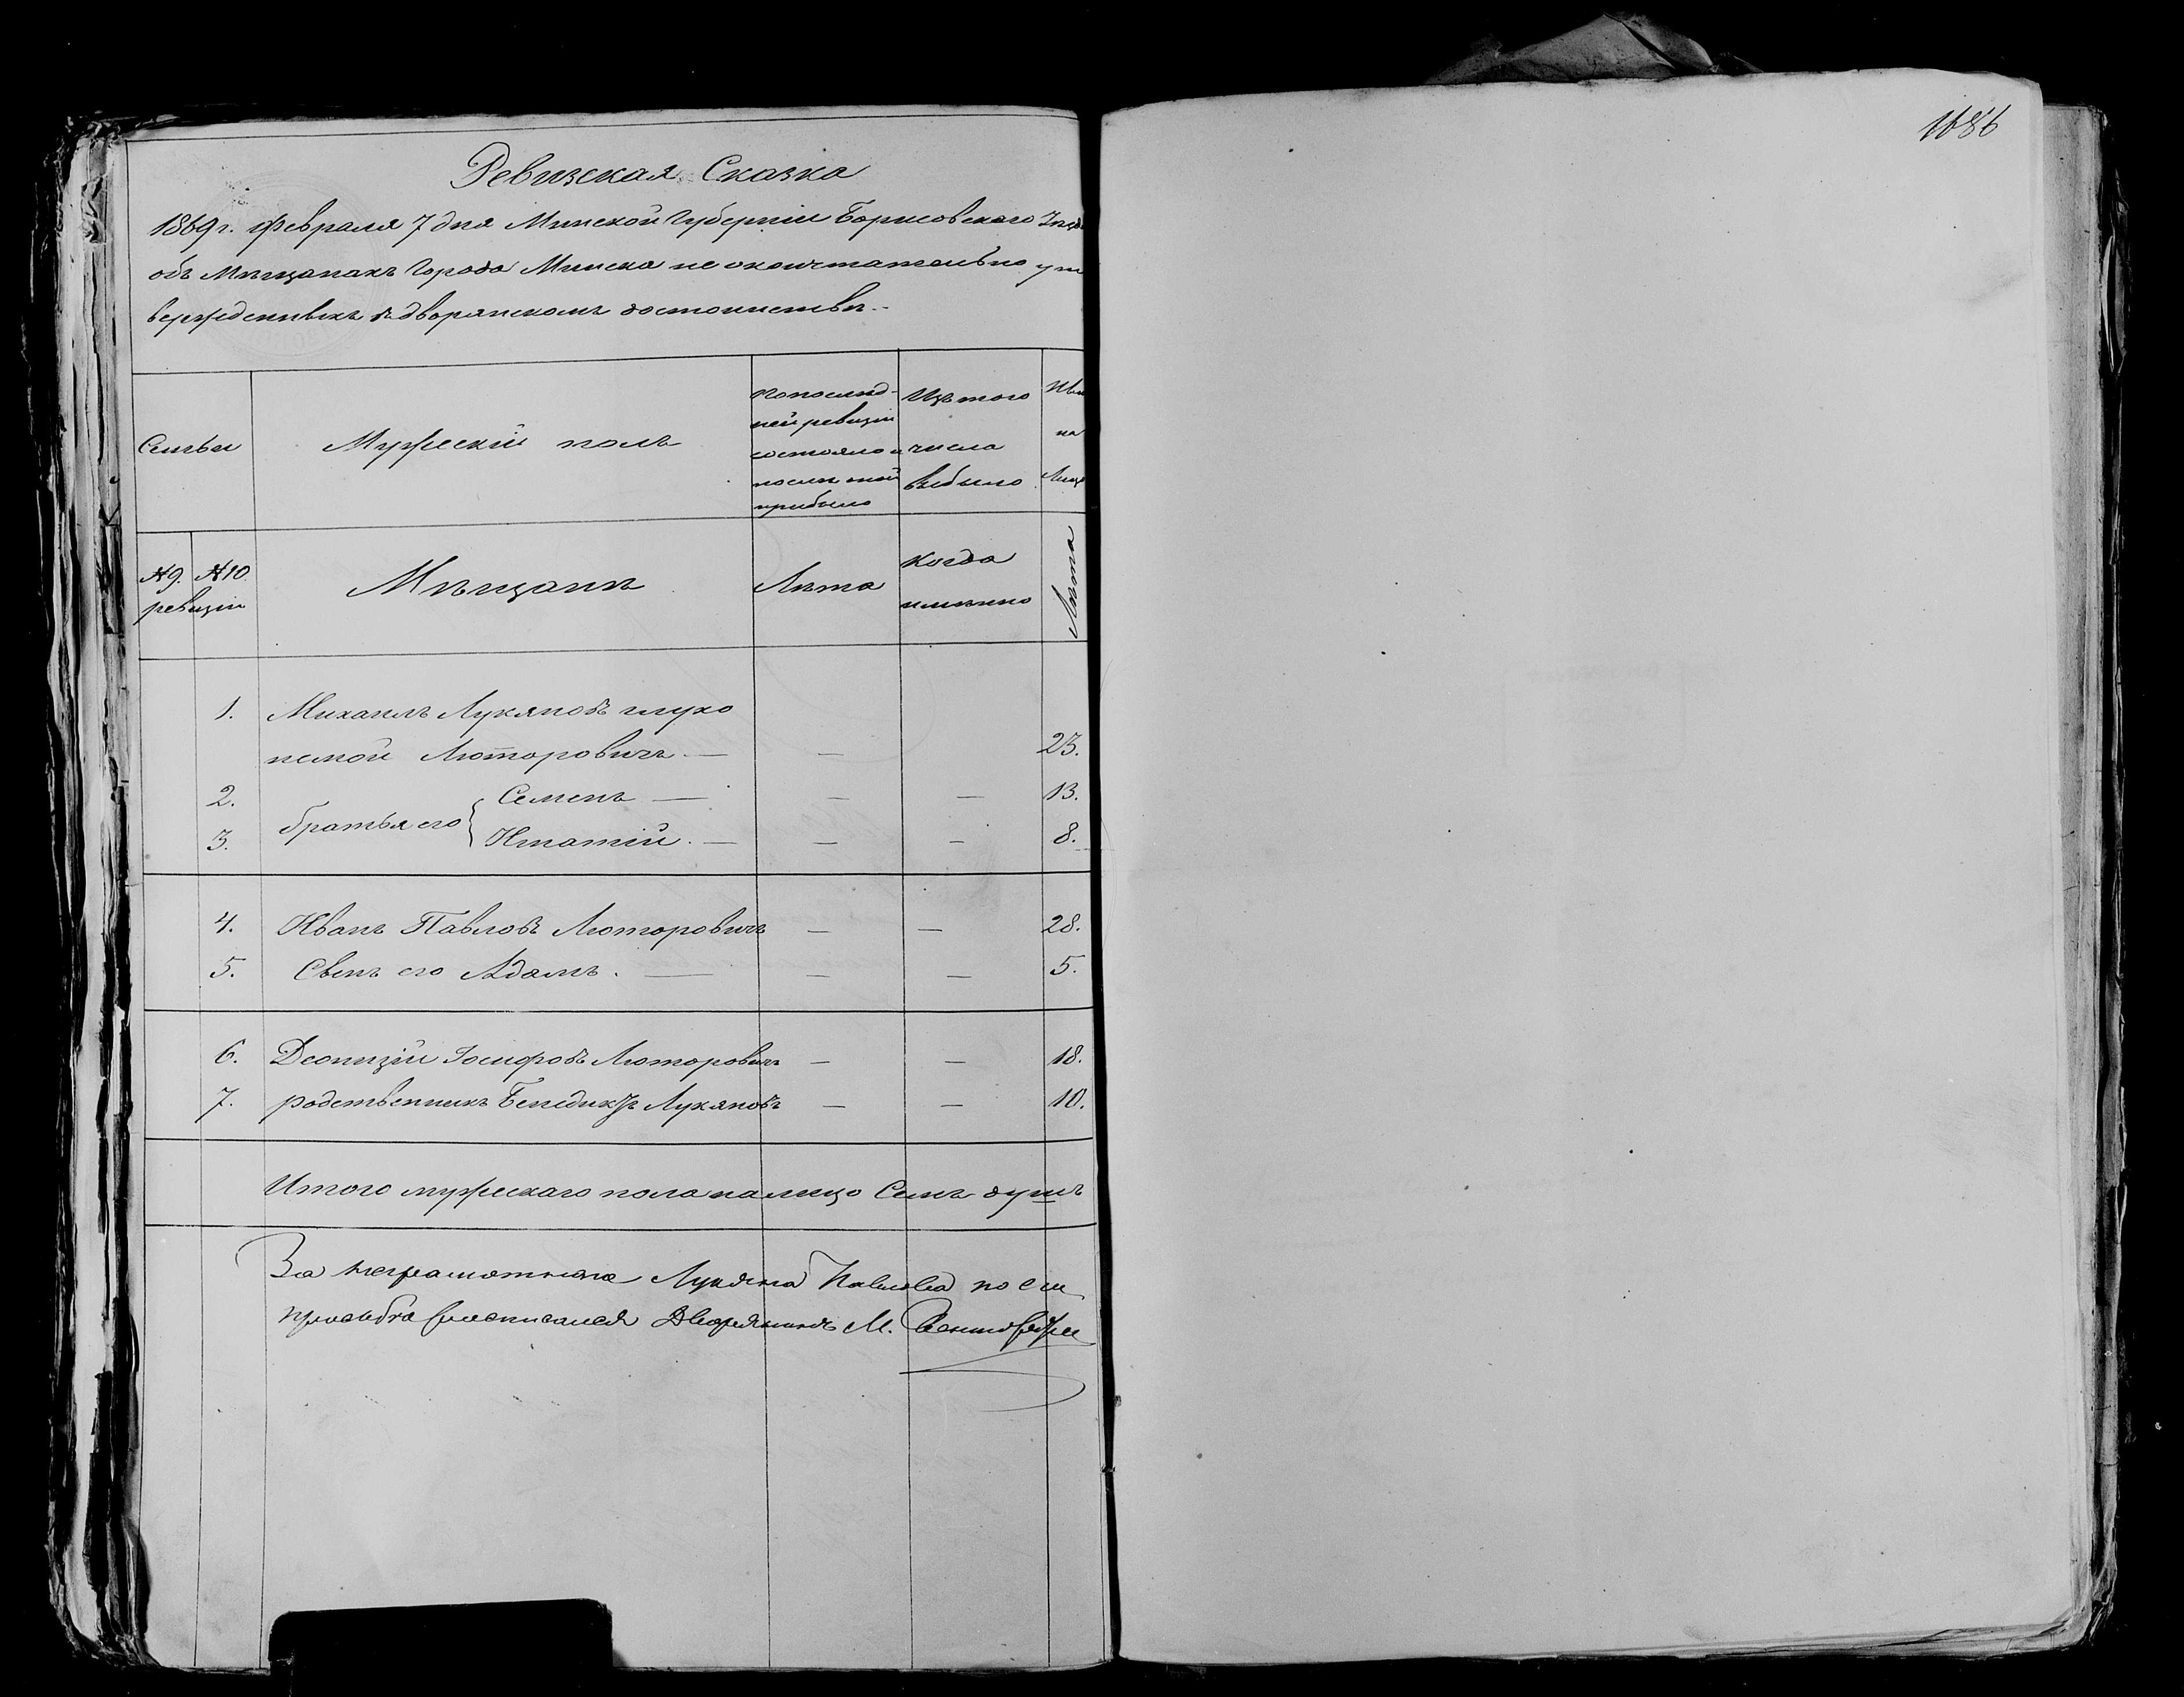 1686
Ревизская Сказка
1869 г. Февраля 7 дня Минской Губерніи Борисовского
объ Мѣщанахъ Города Минска не окончательно ут
вержденныхъ въ дворянскомъ достоинствѣ.-
Семьи
Мужескій полъ
По послѣд-
ней ревизіи
состояло и
послѣ той
прибыло
Изъ того
числа
выбыло
Нын
на
Лицо
№9. №10.
ревизіи
Мѣщанъ
Лѣта
Когда
именно
Лѣта
1. Михаилъ Лукяновъ глухо
немой Лютторовичъ. — — 23.
2. братья его { Семенъ — — — 13.
3. Игнатій. — — — 8.
4. Иванъ Павловъ Люторовичъ — — 28.
5. Сынъ его Адамъ. — — — 5.
6. Деонизій Іосифовъ Люторовичъ — — 18.
7. родственникъ Бенедиктъ Лукяновъ — — 10.
Итого мужескаго пола на лицо Семь душъ
За неграмотнаго Лукяна Павлова по его
просьбѣ росписался Дворянинъ М.